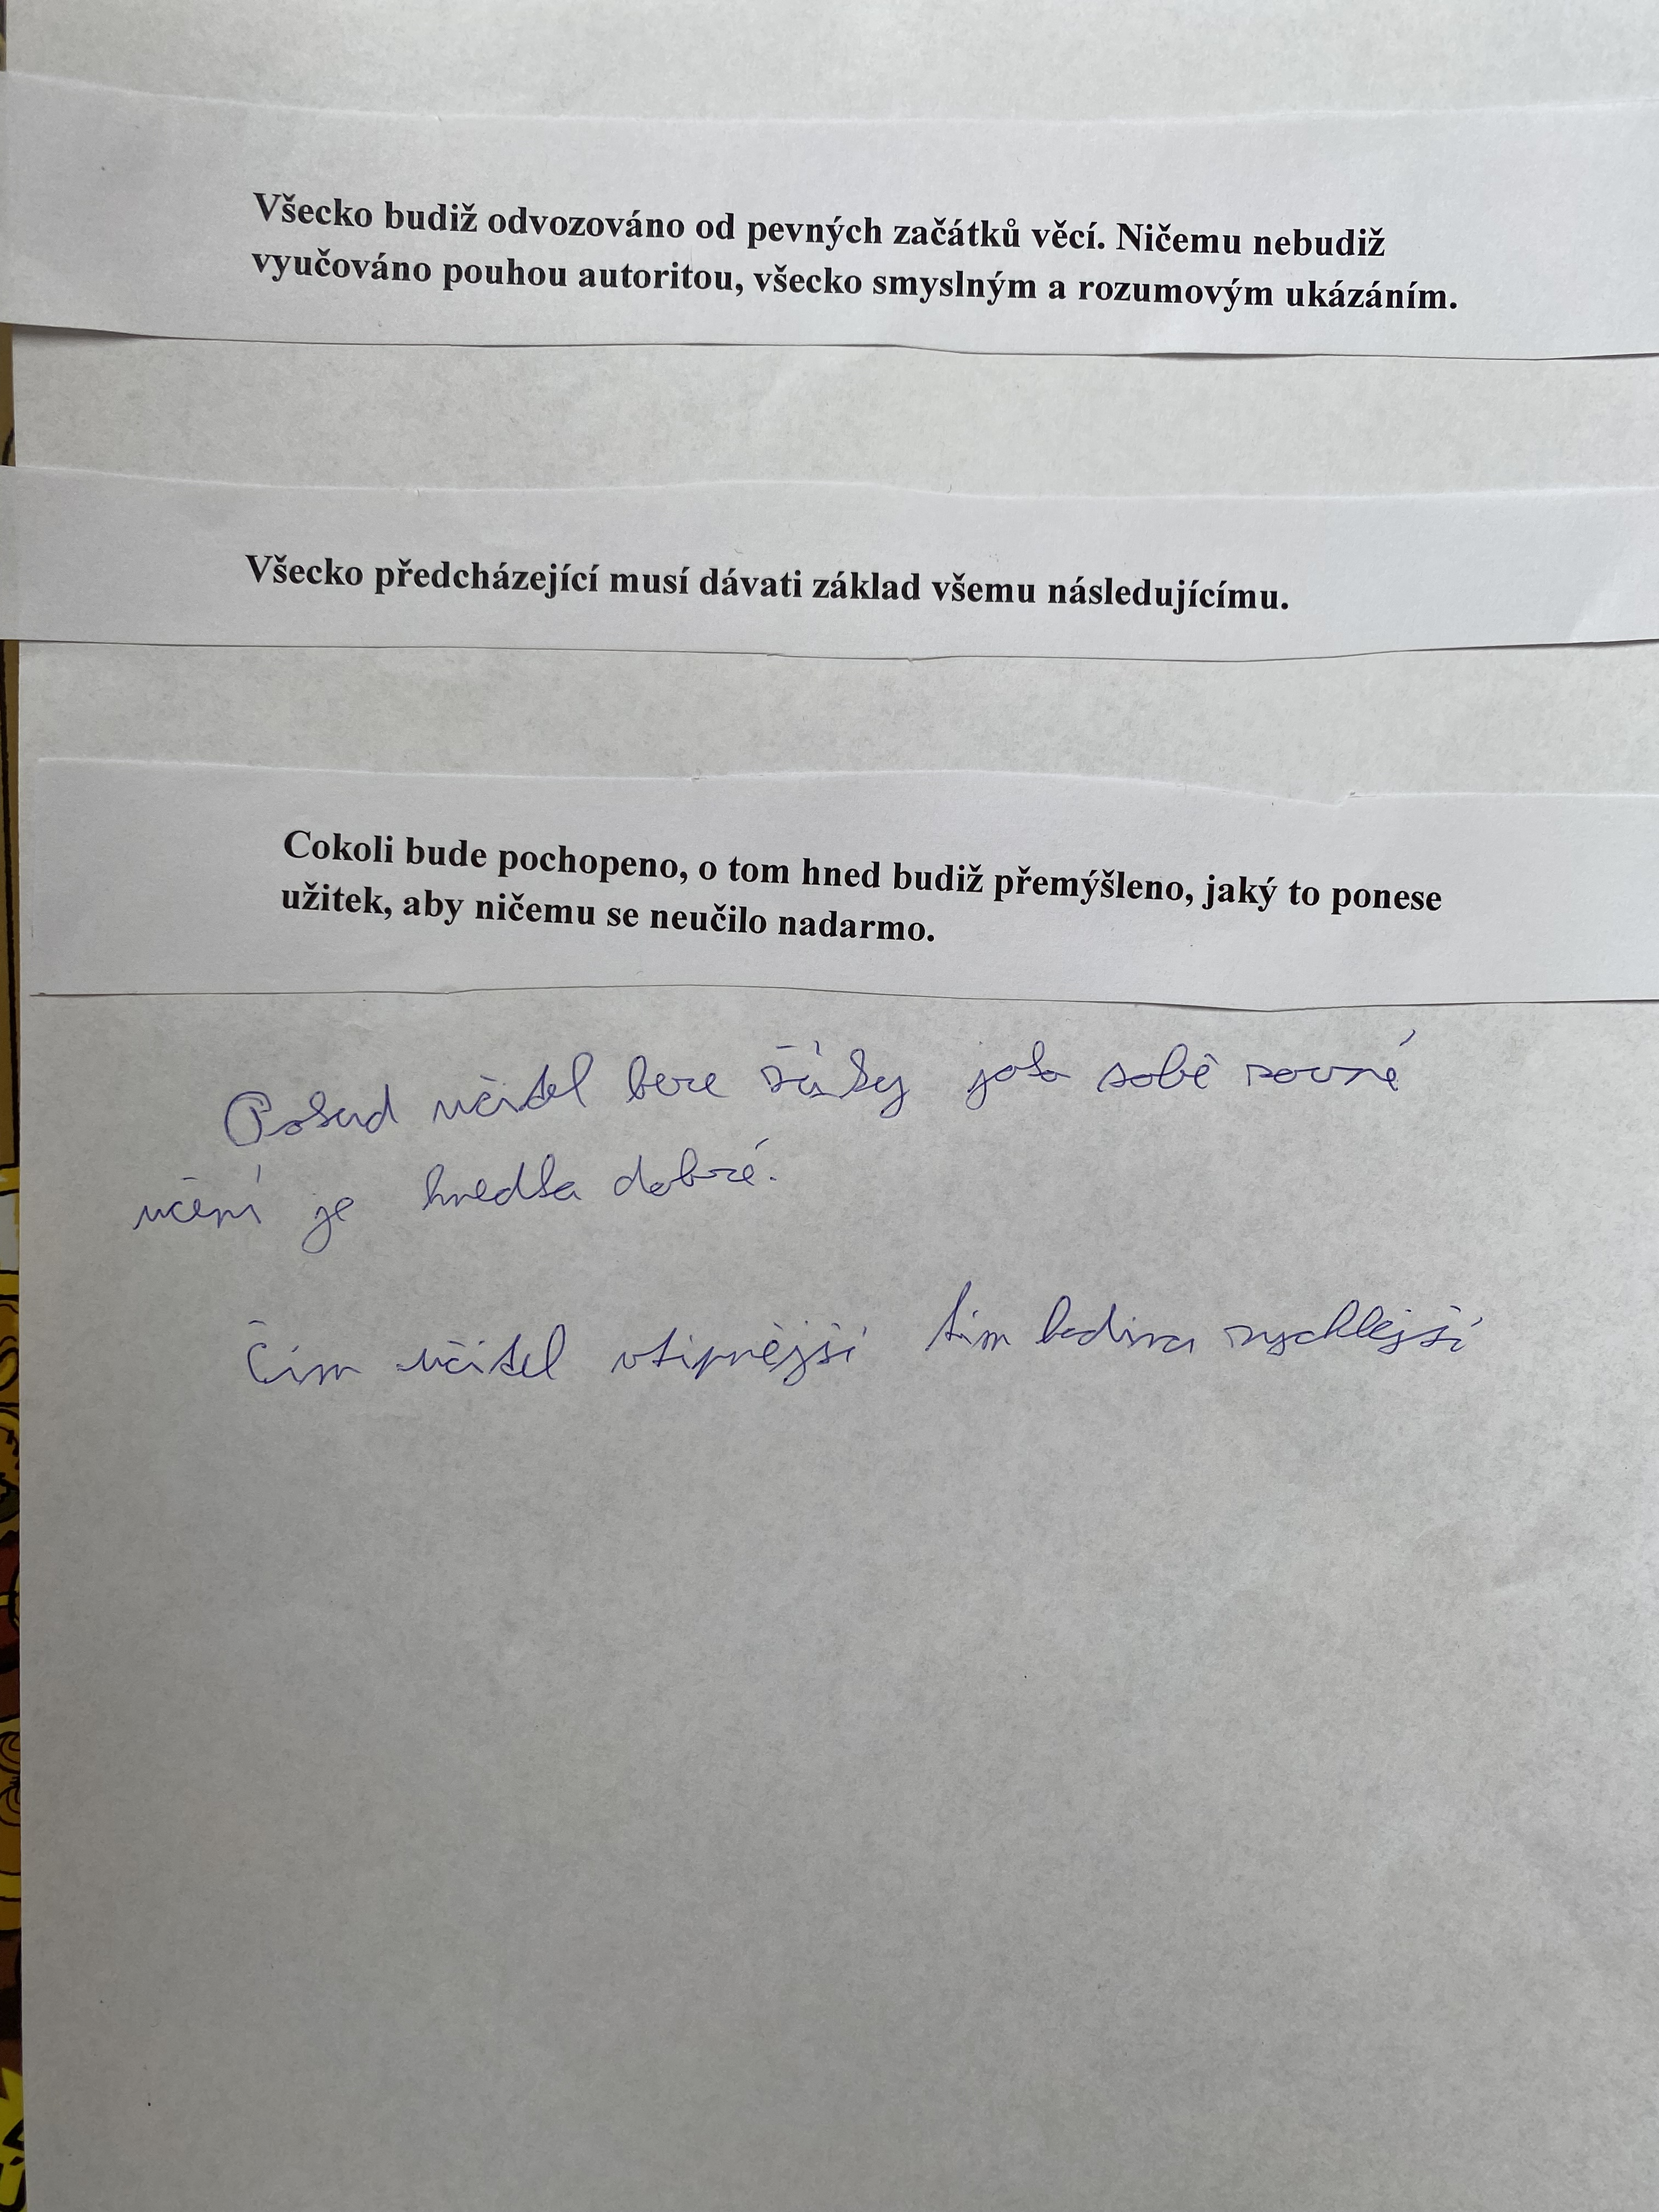 Všecko budiž odvozováno od pevných začátků věcí. Ničemu nebudiž
vyučováno pouhou autoritou, všecko smyslným a rozumovým ukázáním.
Všecko předcházející musí dávati základ všemu následujícímu.
Cokoli bude pochopeno, o tom hned budiž přemýšleno, jaký to ponese
užitek, aby ničemu se neučilo nadarmo.
Pokud učitel bere žáky jako sobě rovné
učení je hnedka dobré.
Čím učitel vtipnější tím hodina rychlejší